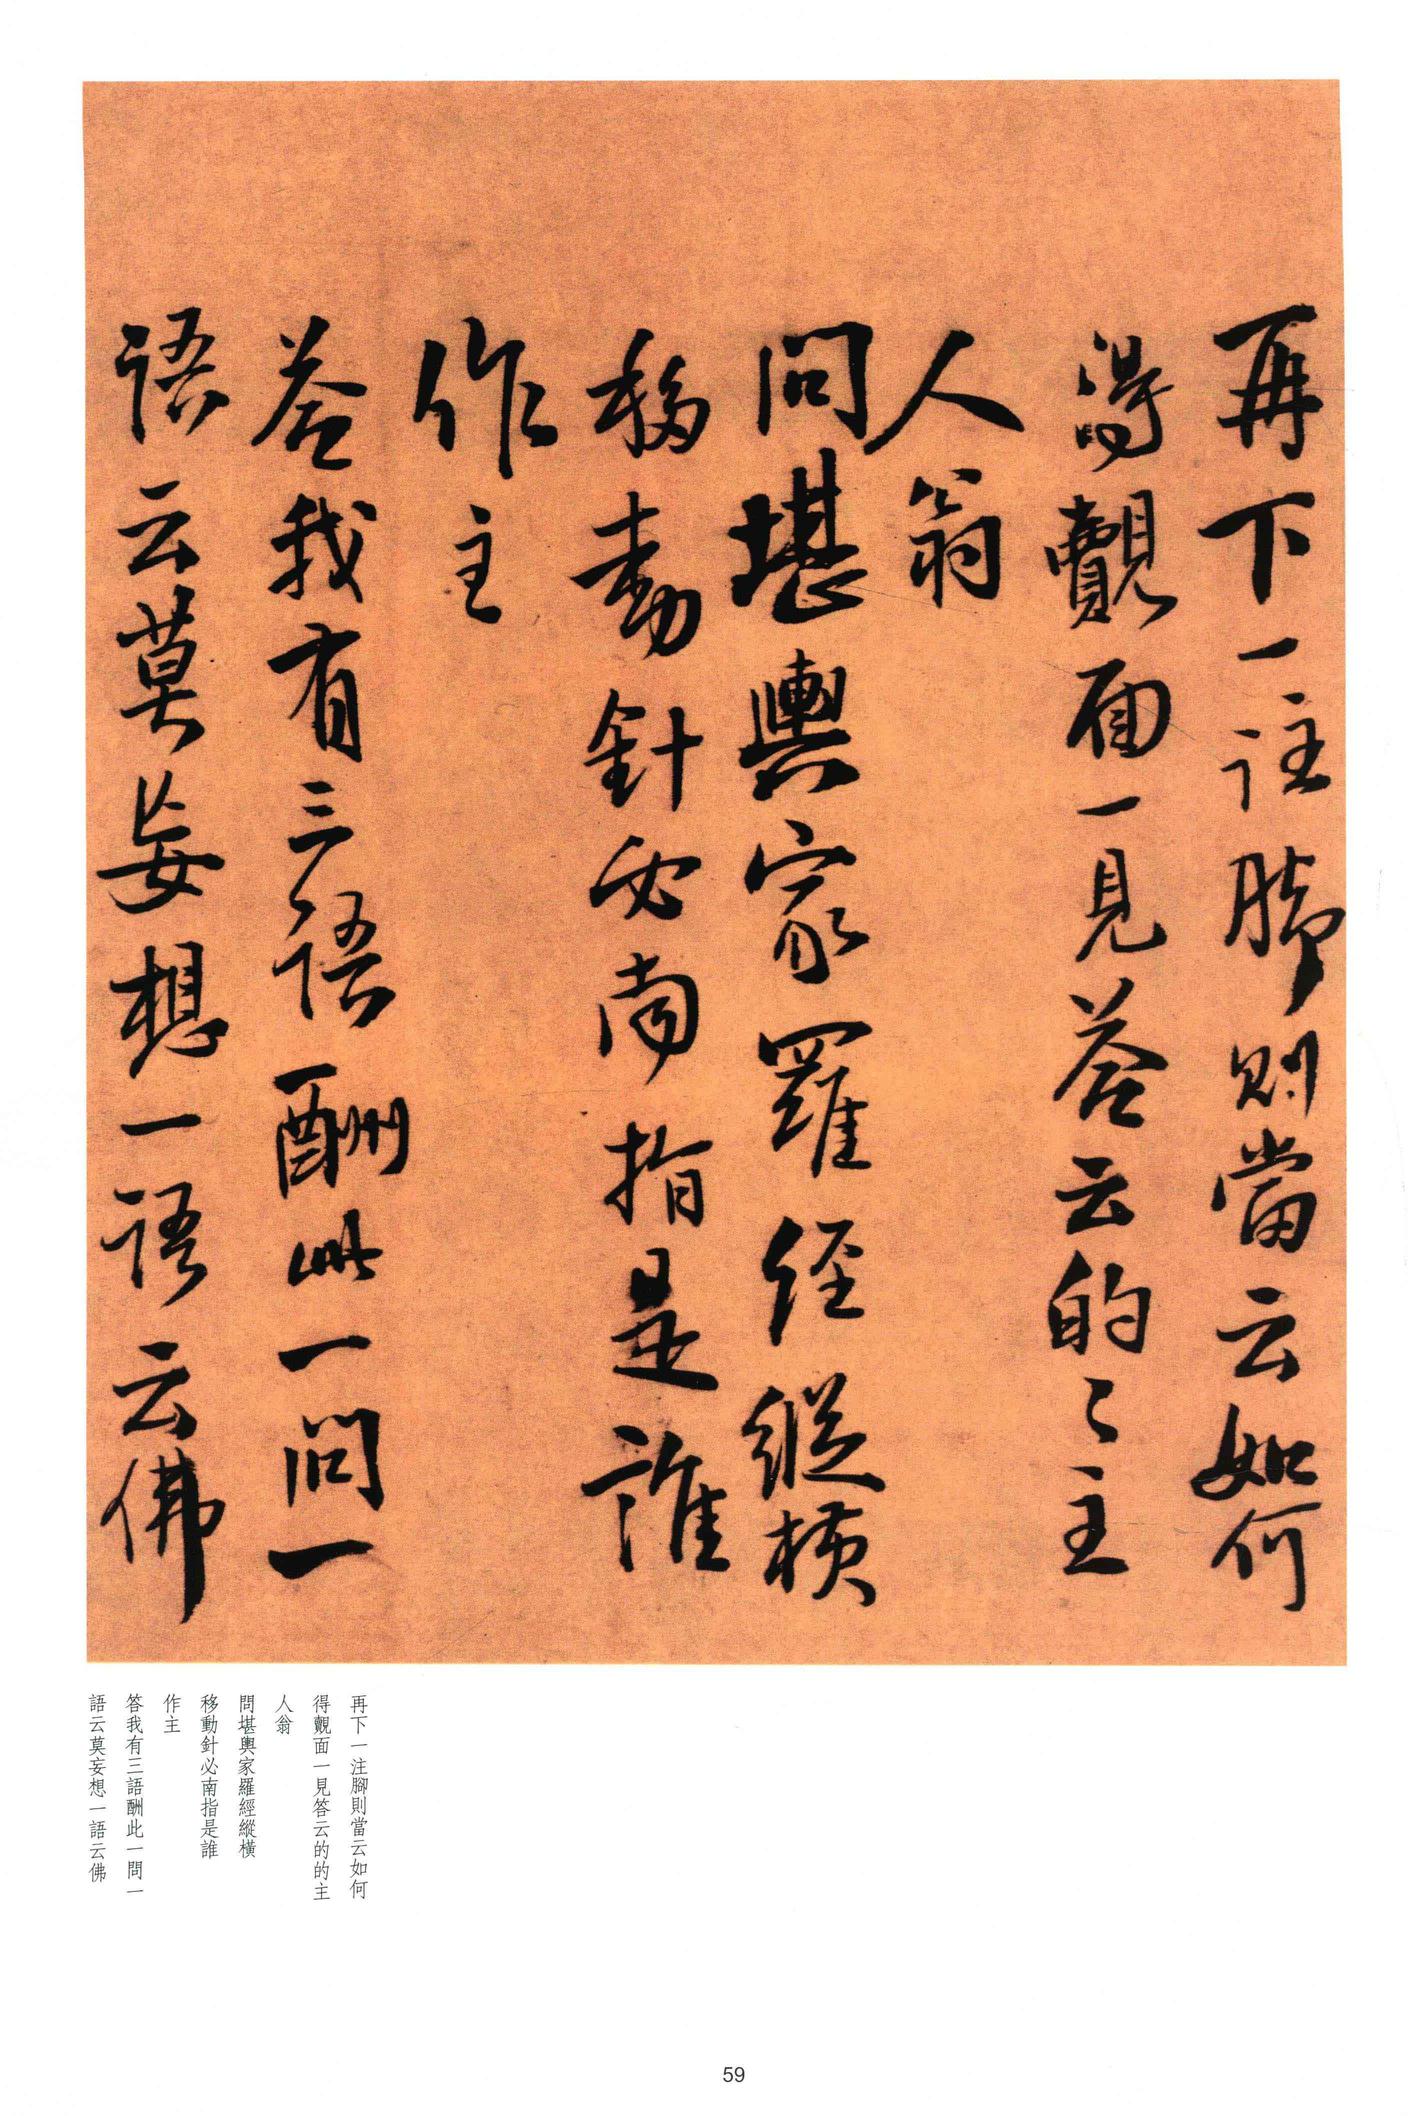 再下一註脚則當云如何
得覿面一見答云的〻主
人翁
問堪輿家羅經縱橫
移動針必南指是誰
作主
答我有三語酬此一問一
語云莫妄想一語云佛
再下一注腳則當云如何
得覿面一見答云的的主
人翁
問堪輿家羅經縱橫
移動針必南指是誰
作主
答我有三語酬此一問一
語云莫妄想一語云佛
59